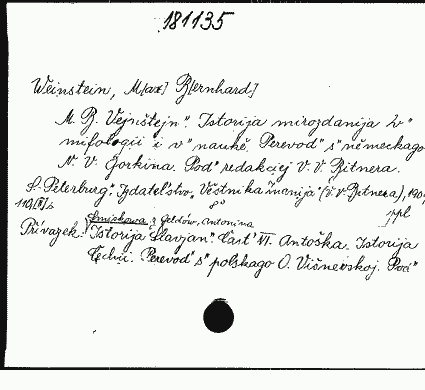 181135
Weinstein, M[ax] B[ernhard.]
M. B. Vejnštejn". Istorija mirozdanija v"
mifologii i v" naukě. Perevod" s" německago
N. V. Gorkina. Pod" redakciej V. V. Bitnera.
S.-Peterburg". Izdatel'stvo „Věstnika Znanija" (V. V. Bitnera), 190
8°
Smiszkowa z Geldów, Antonina
Přívazek: Istorija Slavjan". Čast' VI. Antoška. Istorija
Čechii. Perevod" s" polskago O. Višnevskoj. Pod"